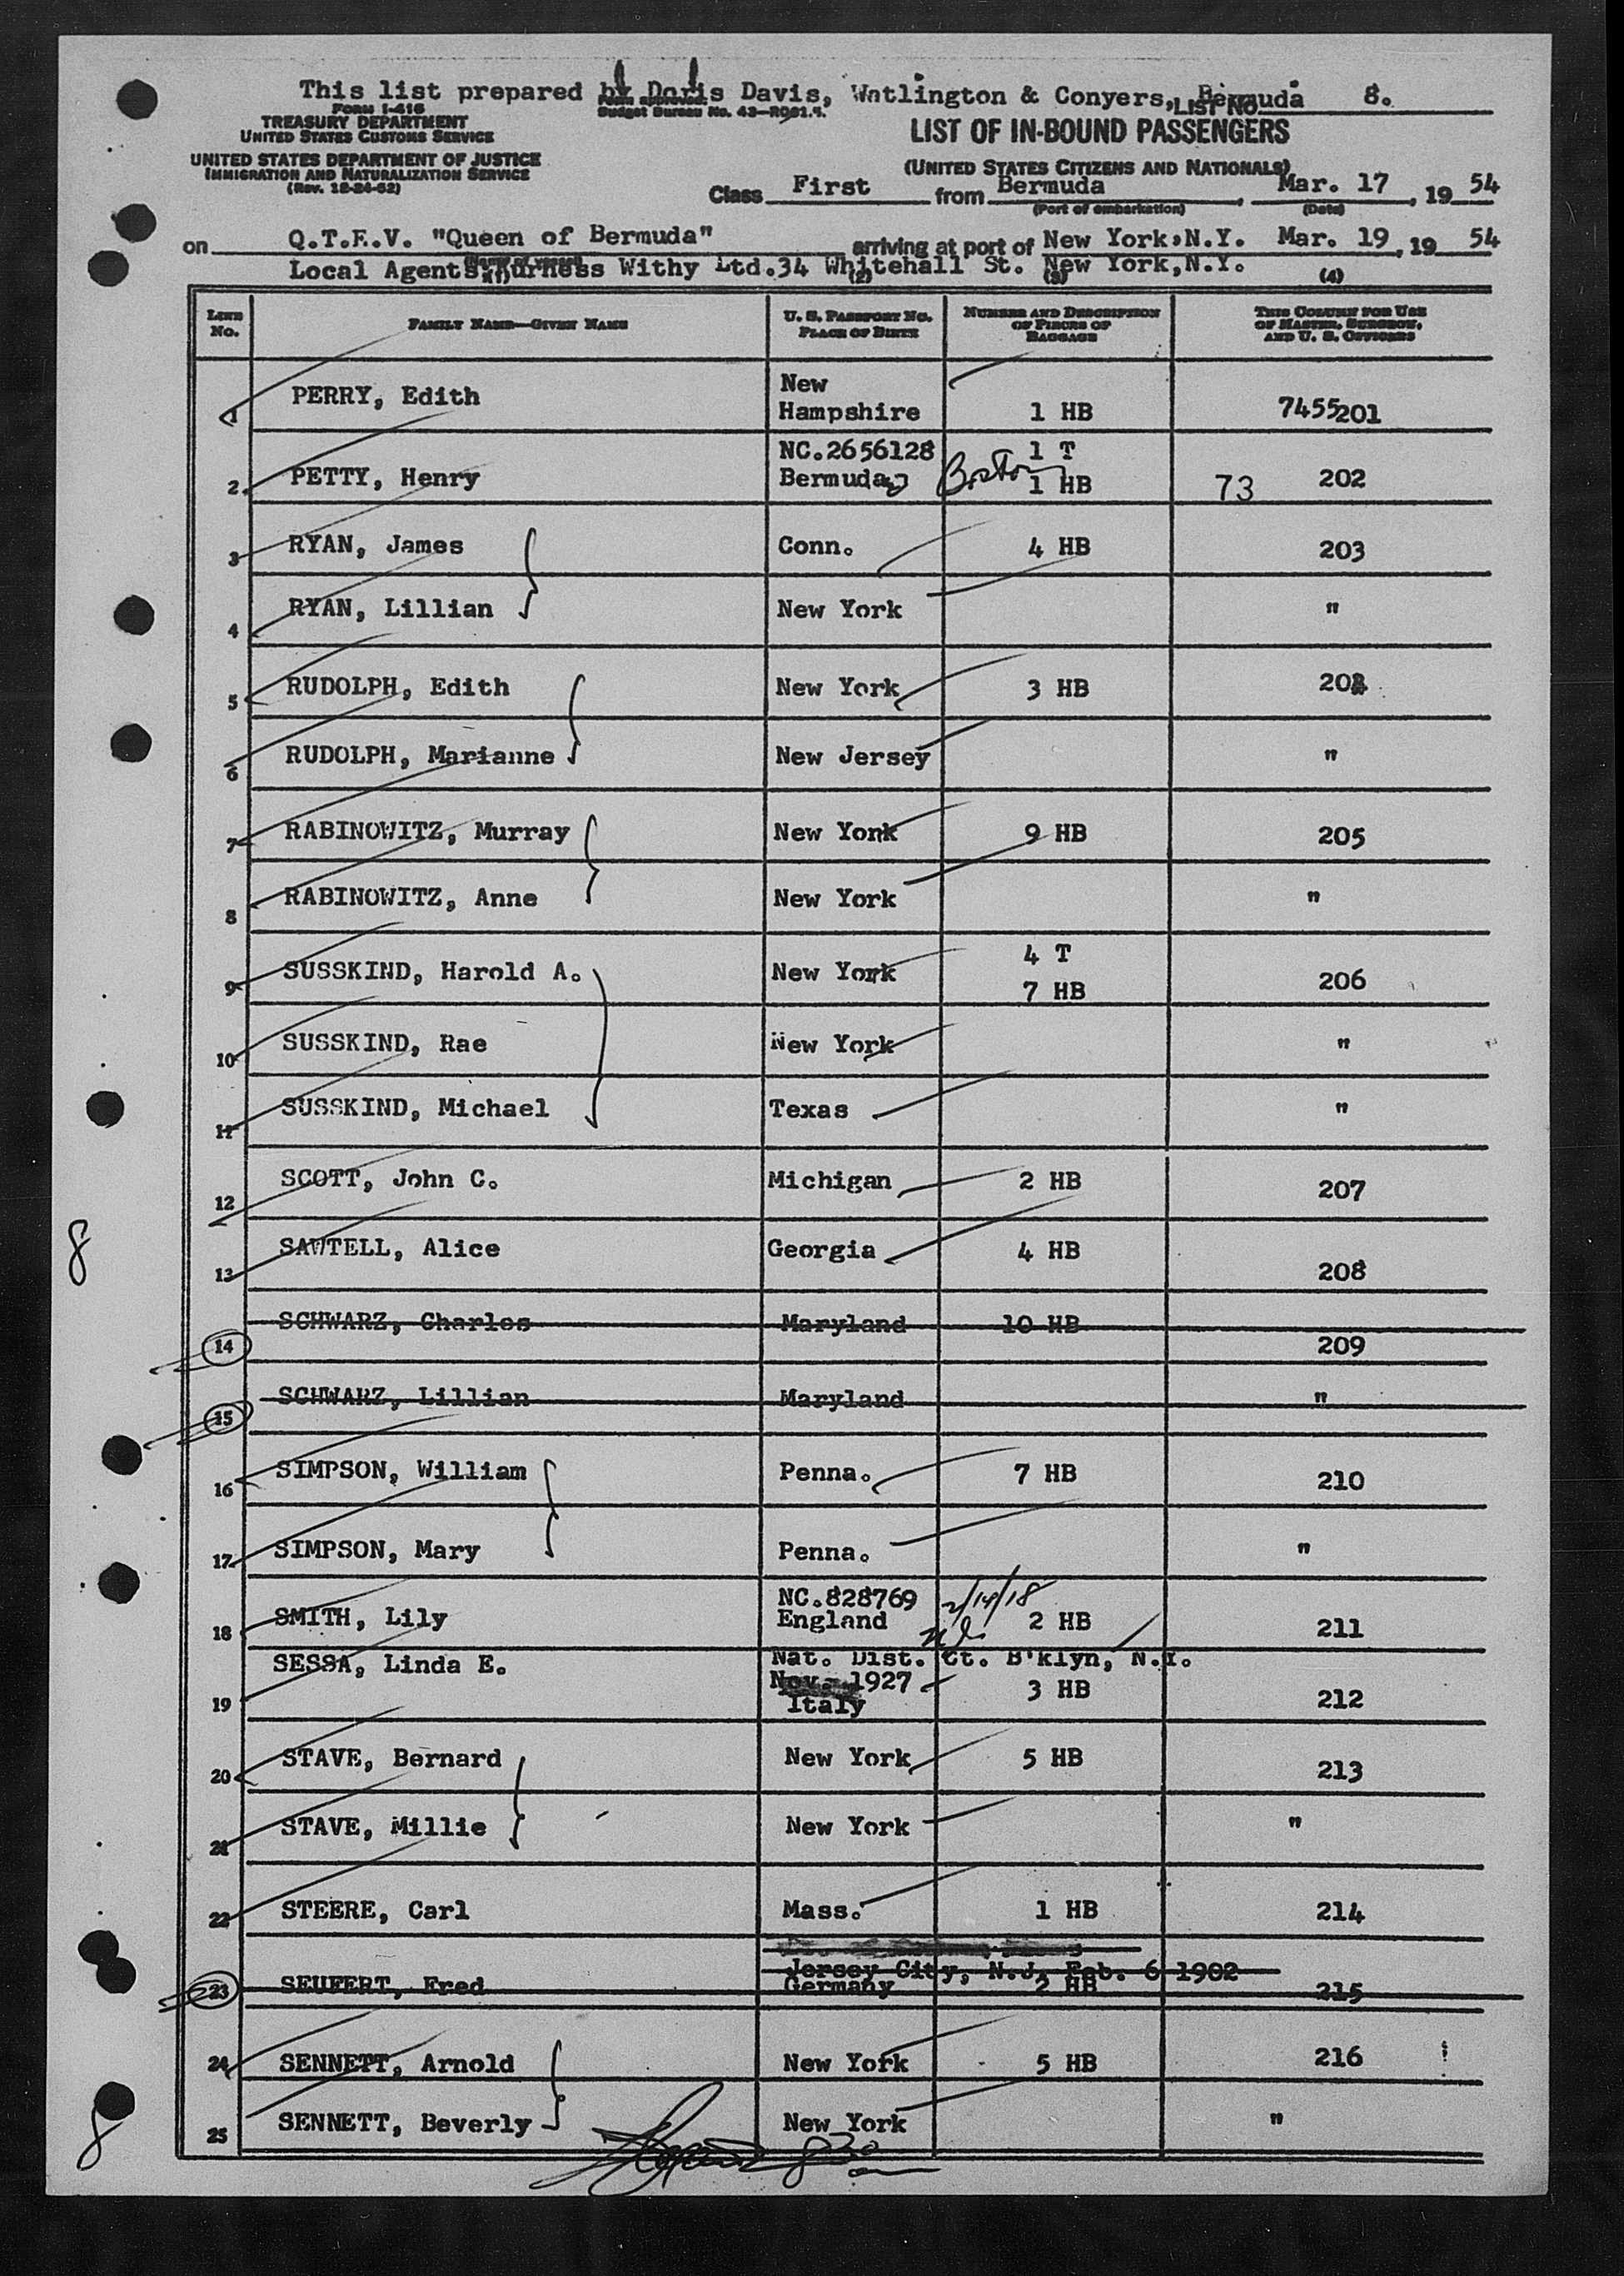 This list prepared by Doris Davis, Watlington & Conyers, Bermuda 8.
LIST NO.
FORM I-416
TREASURY DEPARTMENT
UNITED STATES CUSTOMS SERVICE
Form approved.
Budget Bureau No. 43-R021.4.
LIST OF IN-BOUND PASSENGERS
UNITED STATES DEPARTMENT OF JUSTICE
IMMIGRATION AND NATURALIZATION SERVICE
(Rev. 12-24-52)
(UNITED STATES CITIZENS AND NATIONALS)
Class First from Bermuda, Mar. 17, 19 54
(Port of embarkation) (Date)
on Q.T.E.V. "Queen of Bermuda" arriving at port of New York, N.Y. Mar. 19, 19 54
(Name of vessel)
Local Agents, Furness Withy Ltd. 34 Whitehall St. New York, N.Y.
(1) (2) (3) (4)
LINE NO. FAMILY NAME—GIVEN NAME U. S. PASSPORT NO. PLACE OF BIRTH NUMBER AND DESCRIPTION OF PIECES OF BAGGAGE THIS COLUMN FOR USE OF MASTER, SURGEON, AND U. S. OFFICERS
1 PERRY, Edith New Hampshire 1 HB 7455 201
2 PETTY, Henry NC.2656128 Bermuda Boston 1 T 1 HB 73 202
3 RYAN, James Conn. 4 HB 203
4 RYAN, Lillian New York "
5 RUDOLPH, Edith New York 3 HB
6 RUDOLPH, Marianne New Jersey "
7 RABINOWITZ, Murray New York 9 HB 205
8 RABINOWITZ, Anne New York "
9 SUSSKIND, Harold A. New York 4 T 7 HB 206
10 SUSSKIND, Rae New York "
11 SUSSKIND, Michael Texas "
12 SCOTT, John C. Michigan 2 HB 207
13 SAWTELL, Alice Georgia 4 HB 208
14 SCHWARZ, Charles Maryland 10 HB 209
15 SCHWARZ, Lillian Maryland "
16 SIMPSON, William Penna. 7 HB 210
17 SIMPSON, Mary Penna. "
18 SMITH, Lily NC.828769 England 2/14/18 2 HB 211
19 SESSA, Linda E. Nat. Dist. Ct. B'klyn, N.Y. Nov. 1927 Italy 3 HB 212
20 STAVE, Bernard New York 5 HB 213
21 STAVE, Millie New York "
22 STEERE, Carl Mass. 1 HB 214
23 SEUFERT, Fred Jersey City, N.J. Feb. 6 1902 Germany 2 HB 215
24 SENNETT, Arnold New York 5 HB 216
25 SENNETT, Beverly New York "
8
8